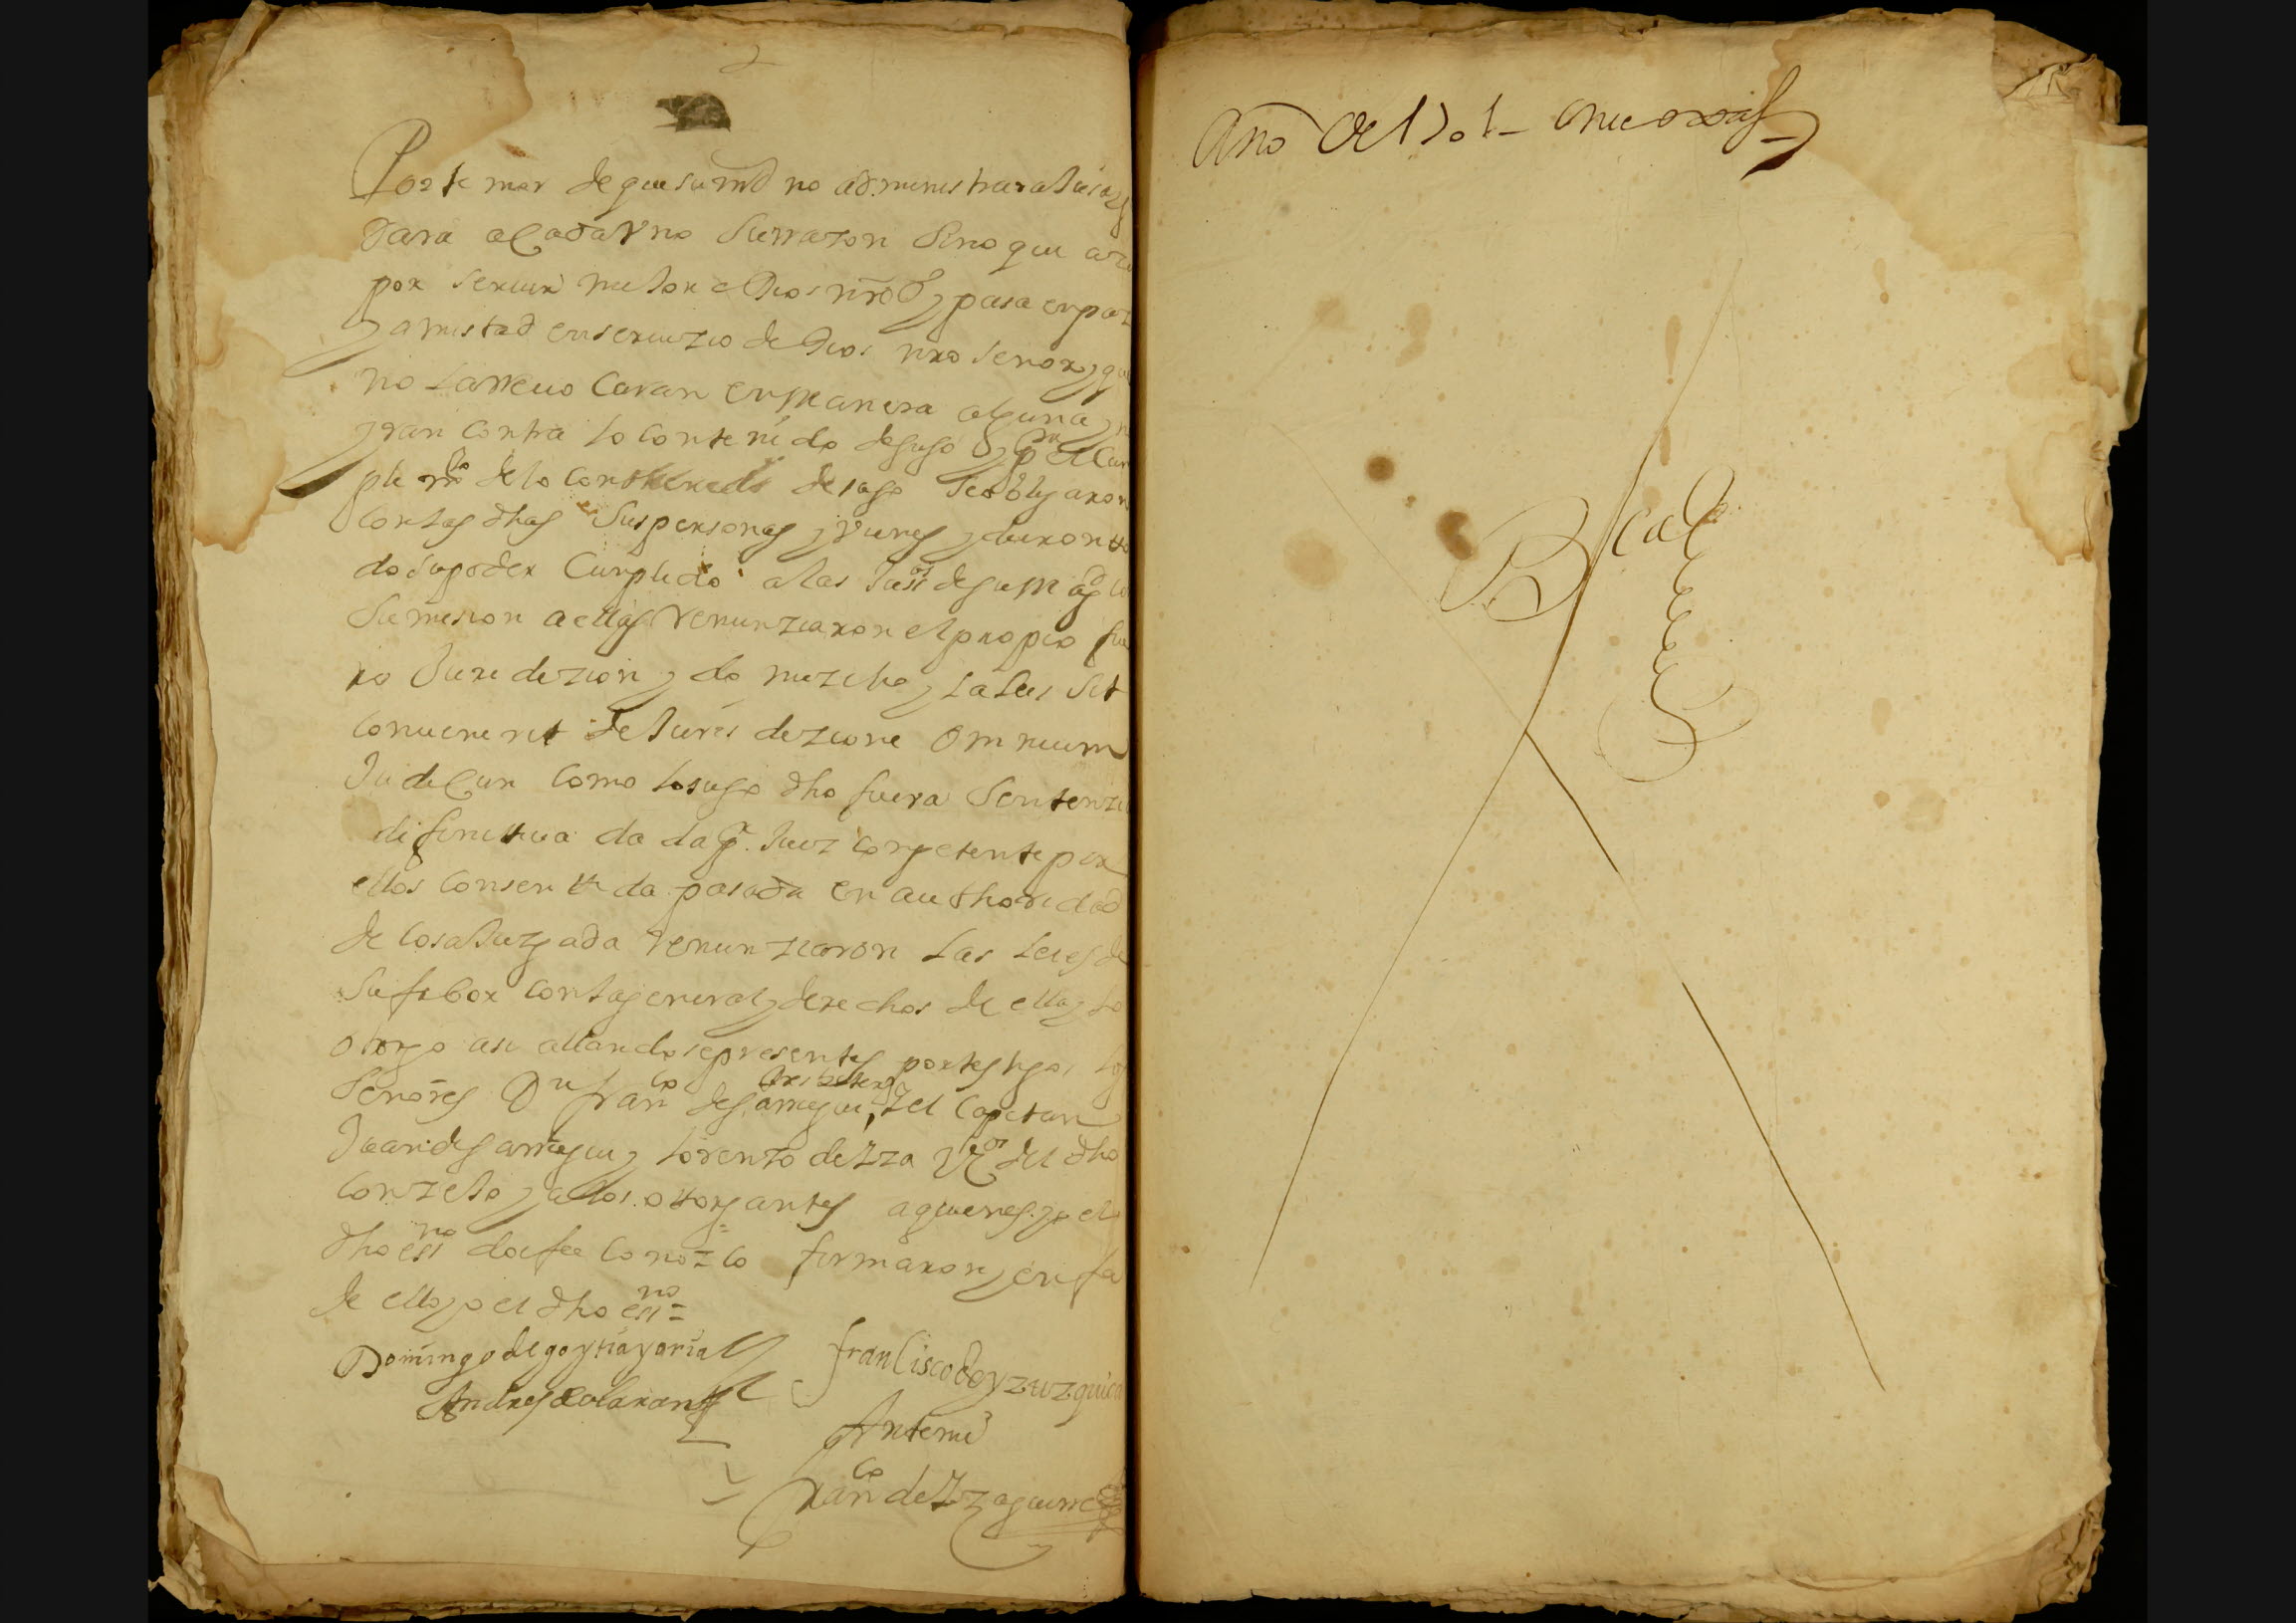 Por temor de que su md no administrara Justa y
dara a Cada Vno Su rrazon Sino que azi
por seruir mejor a Dios nro S y pasa en paz
y amistad en seruizio de Dios nro Senor y que
no La rreuo Caran en manera alguna y n
yran Contra lo contenido desuso y pa el Cun
plimto de lo contenido desuso se obligaron
Con las dhas Sus personas y Vienes y dieron to
do Su poder Cumplido a las Jusas de su Magd Co
Sumision a ellas Renunziaron el propio fue
ro Jurisdizion y domizilio y la Lei Sit
Conuenerit de Jurisdizione Omnium
Judicun Como lo suso dho fuera Sentenzia
difinitiua dada pr Juez Conpetente por
ellos Consentida pasada en authoridad
de Cosa Juzgada Renunziaron Las Leies de
Su fabor Con la general y derechos de ella y lo
otorgo asi allandose presentes por testigos los
Presbitero
Senores Dn franco de gamegui, y el Capitan
Juan de gamegui y Lorenzo de Zza Vos del dho
Conzejo y a los otorgantes a quienes yo el
dho essno doi fee Conozco firmaron y en fe
de ello yo el dho essno =
Domingo de goytia y oria francisco de yzuzquiça
Andres de olaran
Ante mi
franco de Yzaguirre
Año de 1701 mexoxas
Real